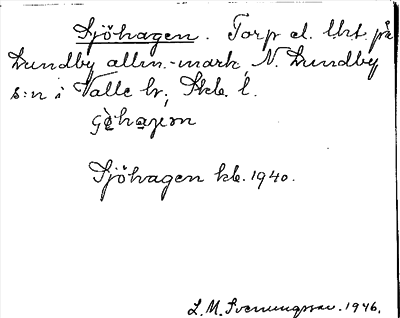 Sjöhagen. Torp el. lht. på
Lundby allm.-mark, N. Lundby
s:n i Valle hr, Skb. l.
Sjöhagen kb. 1940.
L. M. Svenungsson. 1946.